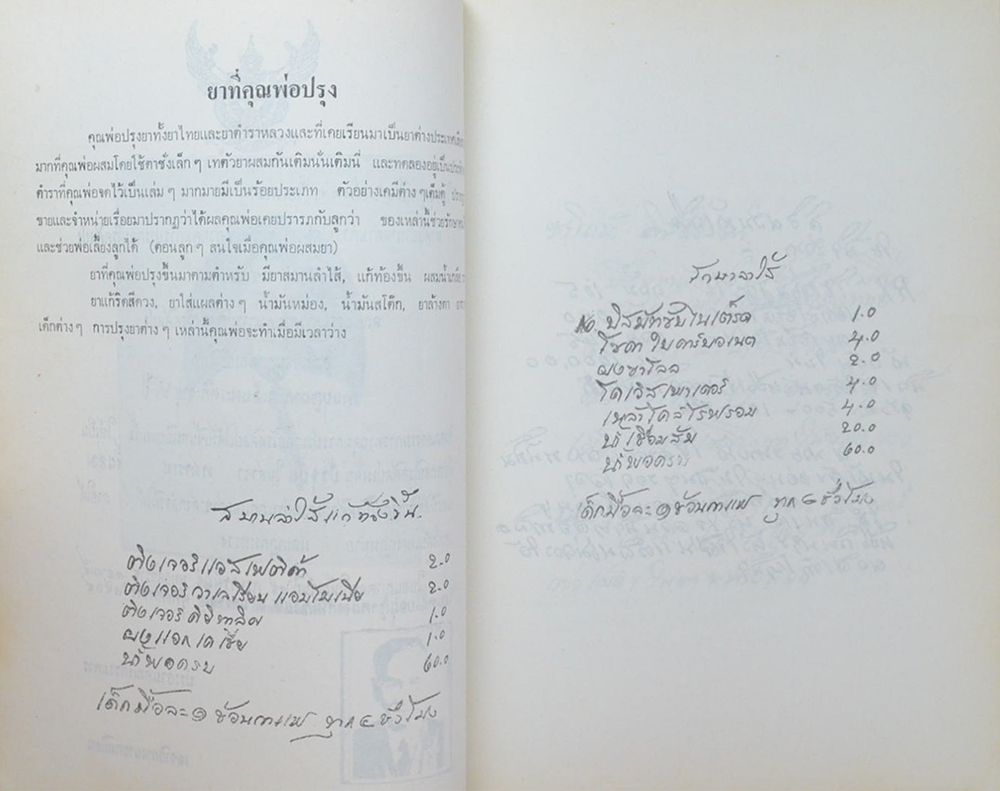 ยาที่คุณพ่อปรุง
คุณพ่อปรุงยาทั้งยาไทยและยาตำราหลวงและที่เคยเรียนมาเป็นยาต่างประเทศ
มากที่คุณพ่อผสมโดยใช้ตาชั่งเล็กๆ เทตัวยาผสมกันเติมนั่นเติมนี่ และทดลองอยู่เป็น
ตำราที่คุณพ่อจดไว้เป็นเล่มๆ มากมายมีเป็นร้อยประเภท ตัวอย่างเคมีต่างๆเต็มตู้
ขายและจำหน่ายเรื่อยมาปรากฏว่าได้ผลคุณพ่อเคยปรารภกับลูกว่า ของเหล่านี้ช่วยรักษา
และช่วยพ่อเลี้ยงลูกได้ (ตอนลูกๆ สนใจเมื่อคุณพ่อผสมยา)
ยาที่คุณพ่อปรุงขึ้นมาตามตำหรับ มียาสมานลำไส้, แก้ท้องขึ้น ผสม
ยาแก้ริดสีดวง, ยาใส่แผลต่างๆ น้ำมันหม่อง, น้ำมันสโต๊ก, ยาล้างตา
เด็กต่างๆ การปรุงยาต่างๆ เหล่านี้คุณพ่อจะทำเมื่อมีเวลาว่าง
สมานลำไส้แก้ท้องขึ้น
ติงเจอร์แอสเฟติด้า 2.0
ติงเจอร์วาเลเรียน แอมโมเนีย 2.0
ติงเจอร์ดิยิทาลิส 1.0
ผงแอกเคเซีย 1.0
น้ำพอครบ 60.0
เด็กมื้อละ ๑ ช้อนกาแฟ ทุก ๔ ชั่วโมง
รักษาลำไส้
No. บิสมัทซับไนเต็รต 1.0
โซดาไบคาร์บอเนต 4.0
ผงซาโลล 2.0
โดเวิสเพาเดอร์ 4.0
เหล้าโคลโรฟอร์ม 4.0
น้ำเชื่อมส้ม 20.0
น้ำพอครบ 60.0
เด็กมื้อละ ๑ ช้อนกาแฟ ทุก ๔ ชั่วโมง